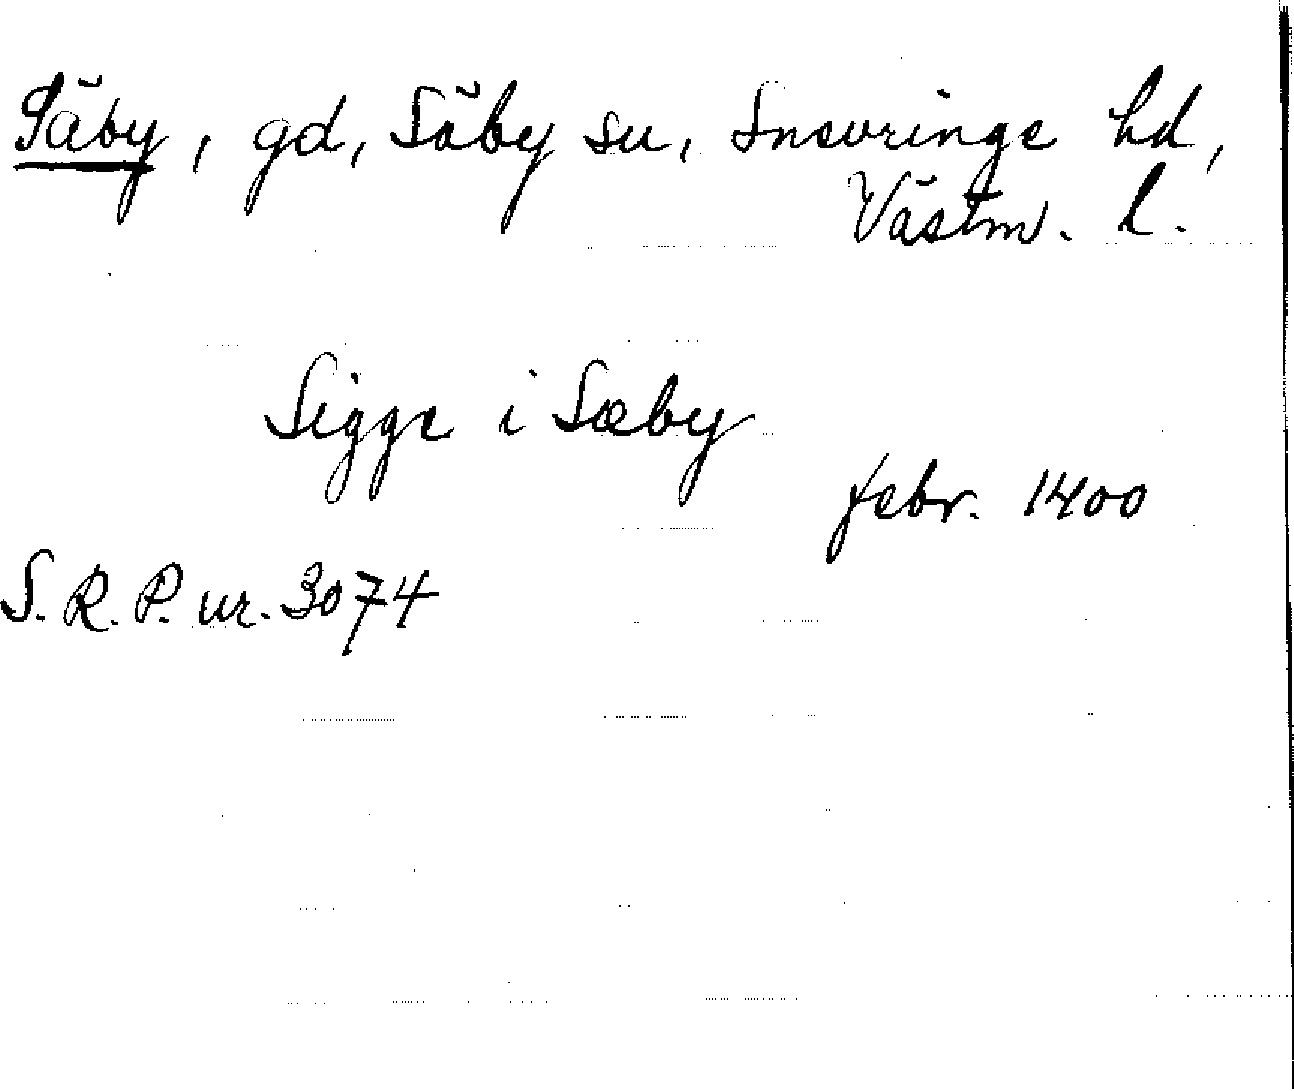 Säby, gd, Säby sn, Snevringe hd,
Västm. l.
Sigge i Sæby
febr. 1400
S.R.P. nr. 3074